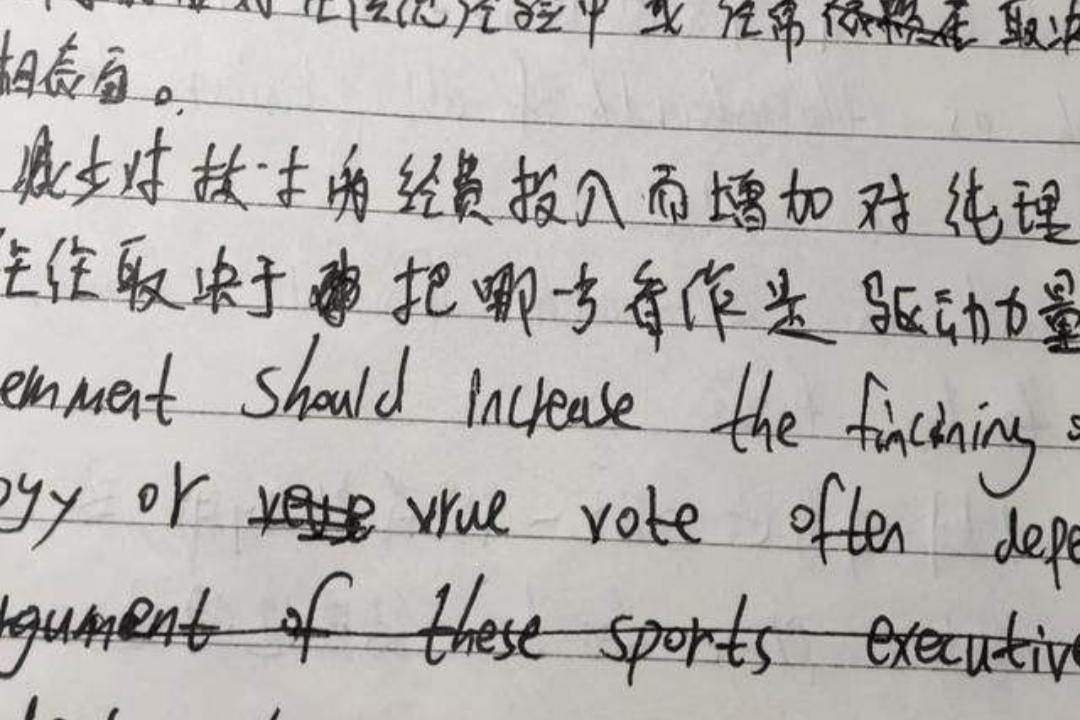 中 或 经常 取决
相态度。
减少对技术的经费投入而增加对纯理
往往取决于 把哪一方看作是 驱动力量
ernment should increase the fincining s
ogy or vrue vote often depe
rgument of these sports executive